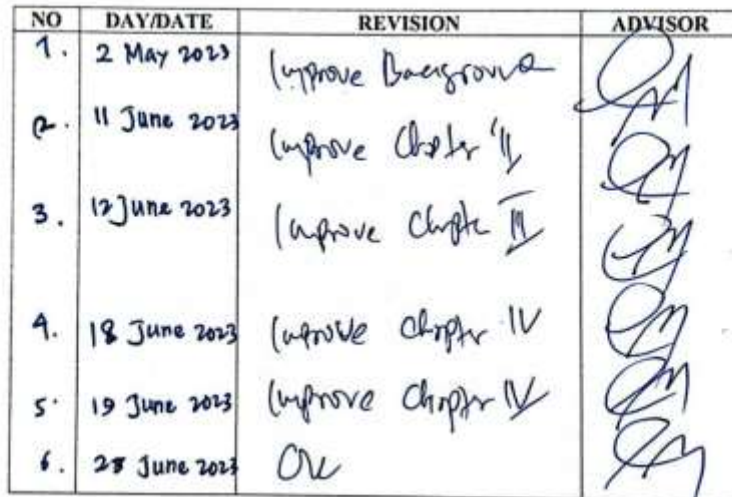 NO DAY/DATE REVISION ADVISOR
1. 2 May 2023 Improve Background
2. 11 June 2023 Improve Chapter II
3. 12 June 2023 Improve Chapter III
4. 18 June 2023 Improve Chapter IV
5. 19 June 2023 Improve Chapter IV
6. June 2023 Ok